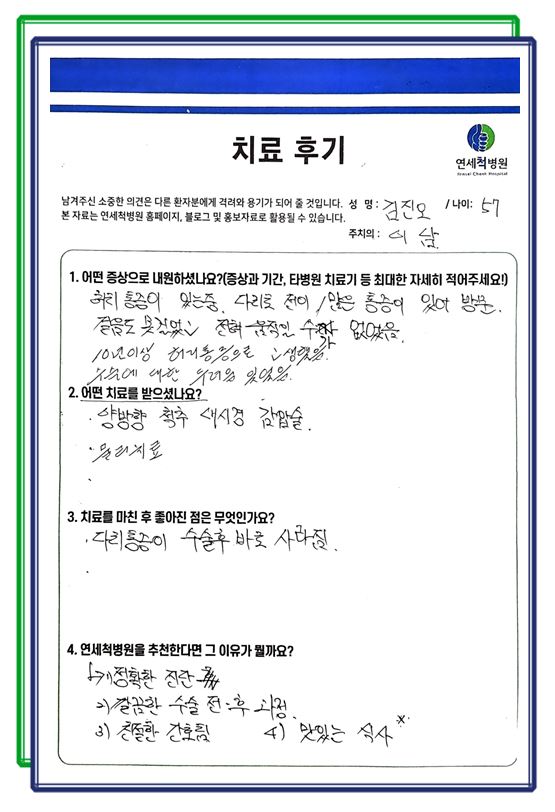 치료 후기
연세척병원
Yonsei Chuck Hospital
남겨주신 소중한 의견은 다른 환자분에게 격려와 용기가 되어 줄 것입니다. 성 명 : 김진오 / 나이 : 57
본 자료는 연세척병원 홈페이지, 블로그 및 홍보자료로 활용될 수 있습니다.
주치의 : 이 남
1. 어떤 증상으로 내원하셨나요?(증상과 기간, 타병원 치료기 등 최대한 자세히 적어주세요!)
허리 통증이 있는중. 다리로 전이 / 많은 통증이 있어 방문.
걸음도 못걸었고 전혀 움직일 수가 없었음
10년이상 허리통증으로 고생했음.
수술에 대한 두려움 있었음.
2. 어떤 치료를 받으셨나요?
· 양방향 척추 내시경 감압술.
· 물리치료
·
3. 치료를 마친 후 좋아진 점은 무엇인가요?
· 다리통증이 수술후 바로 사라짐.
·
4. 연세척병원을 추천한다면 그 이유가 뭘까요?
1) 정확한 진단
2) 깔끔한 수술 전·후 과정.
3) 친절한 간호팀 4) 맛있는 식사